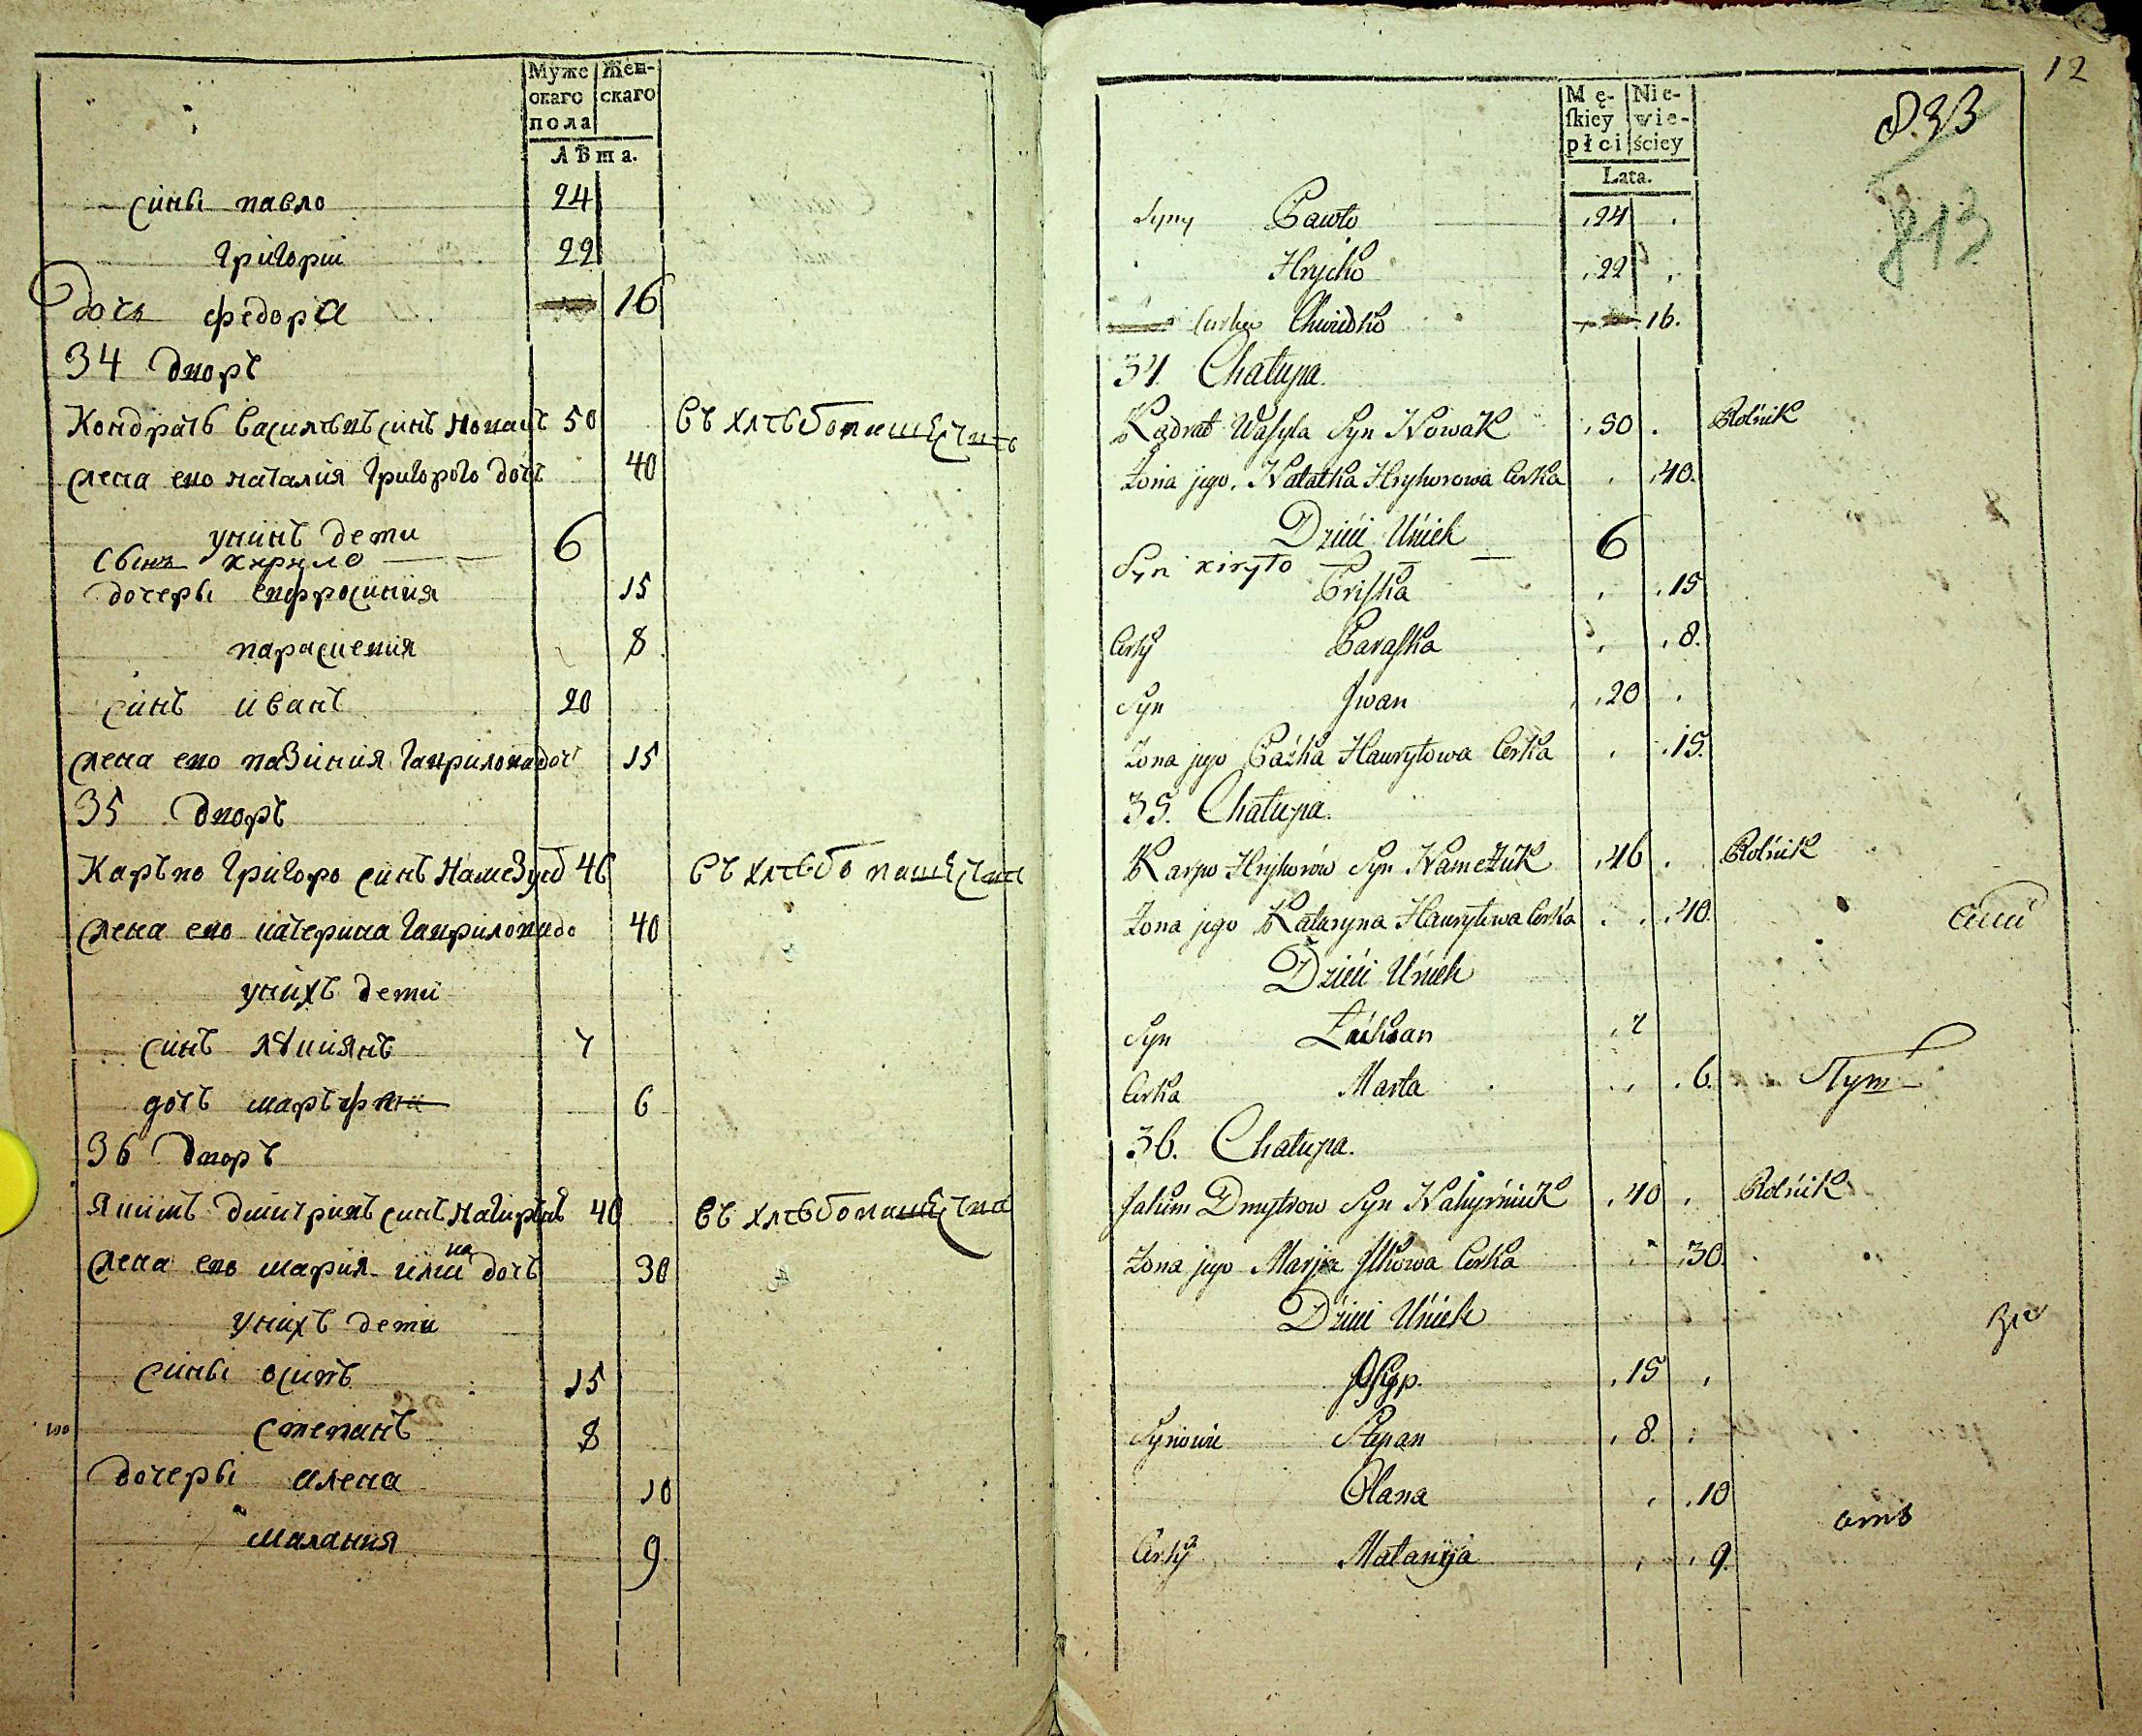 Муже Жен-
скаго скаго
пола
Лѣта.
сины павло 24
григорий 22
дочь федора 16
34 дворъ
Кондратъ василѣвъ синъ новакъ 50 Съ хлѣбопашества
жена ево наталия григорого дочь 40
унихъ дети
Сынъ кирило — 6
дочеры ефросиния 15
парасцевия 8
синъ иванъ 20
жена ево пазиния гаврилова доч 15
35 дворъ
Каръпо григоро синъ 46 Съ хлѣбо пашества
жена ево катерина гаврилова до 40
унихъ дети
синъ лукиянъ 7
дочъ маръфа 6
36 дворъ
Якимъ дмитриевъ синъ 40 Съ хлѣбопашества
жена ево мария дочъ 30
унихъ дети
сины осипъ 15
степанъ 8
дочеры алена 10
малания 9
12
833
813
Mę- Nie-
skiey wie-
płci ściey
Lata.
Syny Pawło 24
Hrycko 22
Curka Chwiedko 16.
34. Chałupa.
Kądrat Wasyla Syn Nowak 50 Rolnik
Żona jego. Natałka Hryhorowa Corka 40.
Dzieci Unich
Syn kiryło — 6
Priska 15
Corky Paraska 8.
Syn Jwan 20
Żona jego Paźka Hawryłowa Corka 15.
35. Chałupa.
Karpo Hryhorów Syn Namezuk 46 Rolnik
Żona jego Kataryna Hawryłowa Corka 40.
Dzieci Unich
Syn Łukian 7
Corka Marta 6.
36. Chałupa.
Jakim Dmytrow Syn 40 Rolnik
Żona jego Marja Jlkowa Corka 30.
Dzieci Unich
Osyp. 15
Synowie Stepan 8.
Olana 10
Corky Małanija 9.